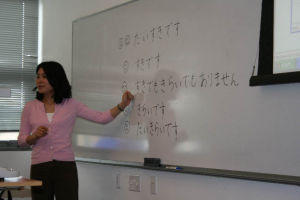 たいすきです
すきです
すきでもきらいでもありません
きらいです
たいきらいです